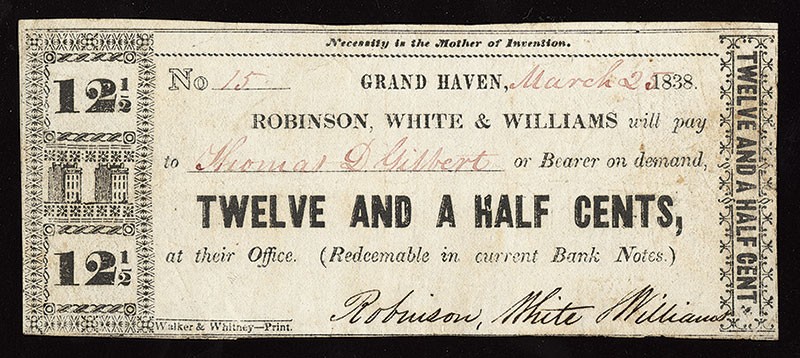 Necessity is the Mother of Invention.
12 1/2
No 15 GRAND HAVEN, March 2 1838.
ROBINSON, WHITE & WILLIAMS will pay
to Thomas D Gilbert or Bearer on demand,
TWELVE AND A HALF CENTS,
at their Office. (Redeemable in current Bank Notes.)
12 1/2
Robinson, White & Williams
Walker & Whitney—Print.
TWELVE AND A HALF CENT.